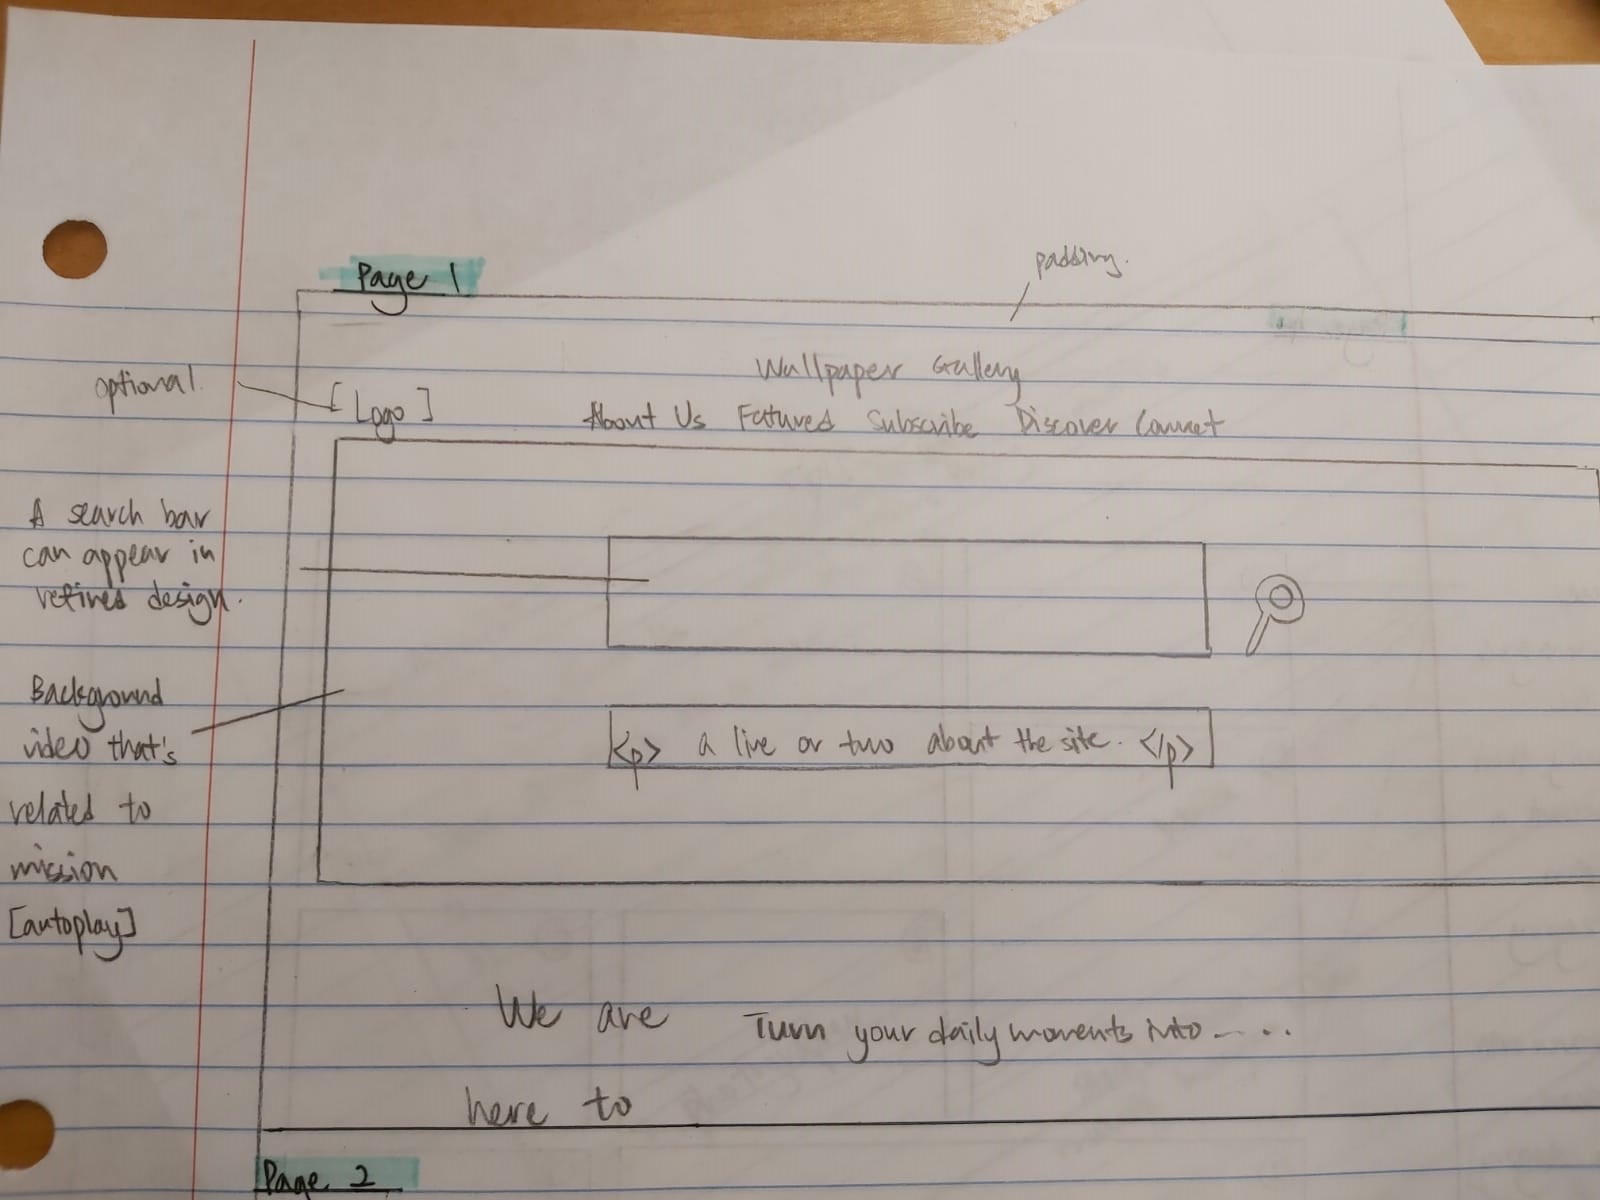 Page 1
padding.
Wallpaper Gallery
optional.
[Logo]
About Us Fatured Subscribe Discover Connect
A search bar
can appear in
refined design.
Background
video that's
related to
mission
[autoplay]
<p> a line or two about the site. </p>
We are
here to
Turn your daily moments into .....
Page 2